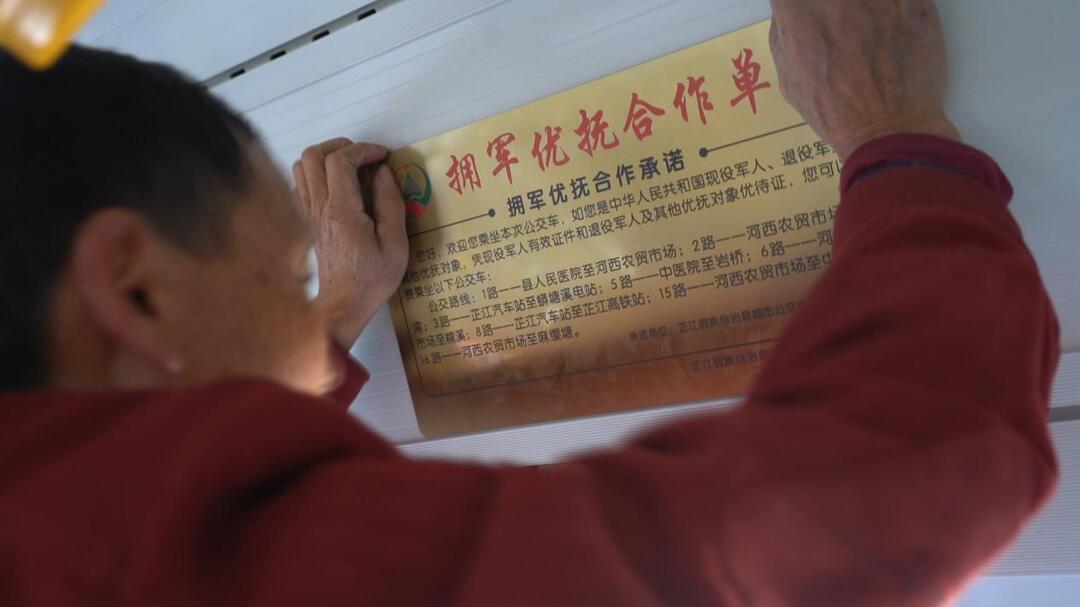 拥军优抚合作单
拥军优抚合作承诺
您好，欢迎您乘坐本次公交车，如您是中华人民共和国现役军人、退役军
其他优抚对象，凭现役军人有效证件和退役军人及其他优抚对象优待证，您可
费乘坐以下公交车：
公交路线：1路——县人民医院至河西农贸市场；2路——河西农贸市场
湾；3路——芷江汽车站至蟒塘溪电站；5路——中医院至岩桥；6路——河
市场至糯溪；8路——芷江汽车站至芷江高铁站；15路——河西农贸市场至中
16路——河西农贸市场至麻缨塘。
承诺单位：芷江侗族自治县城市公交
芷江侗族自治县